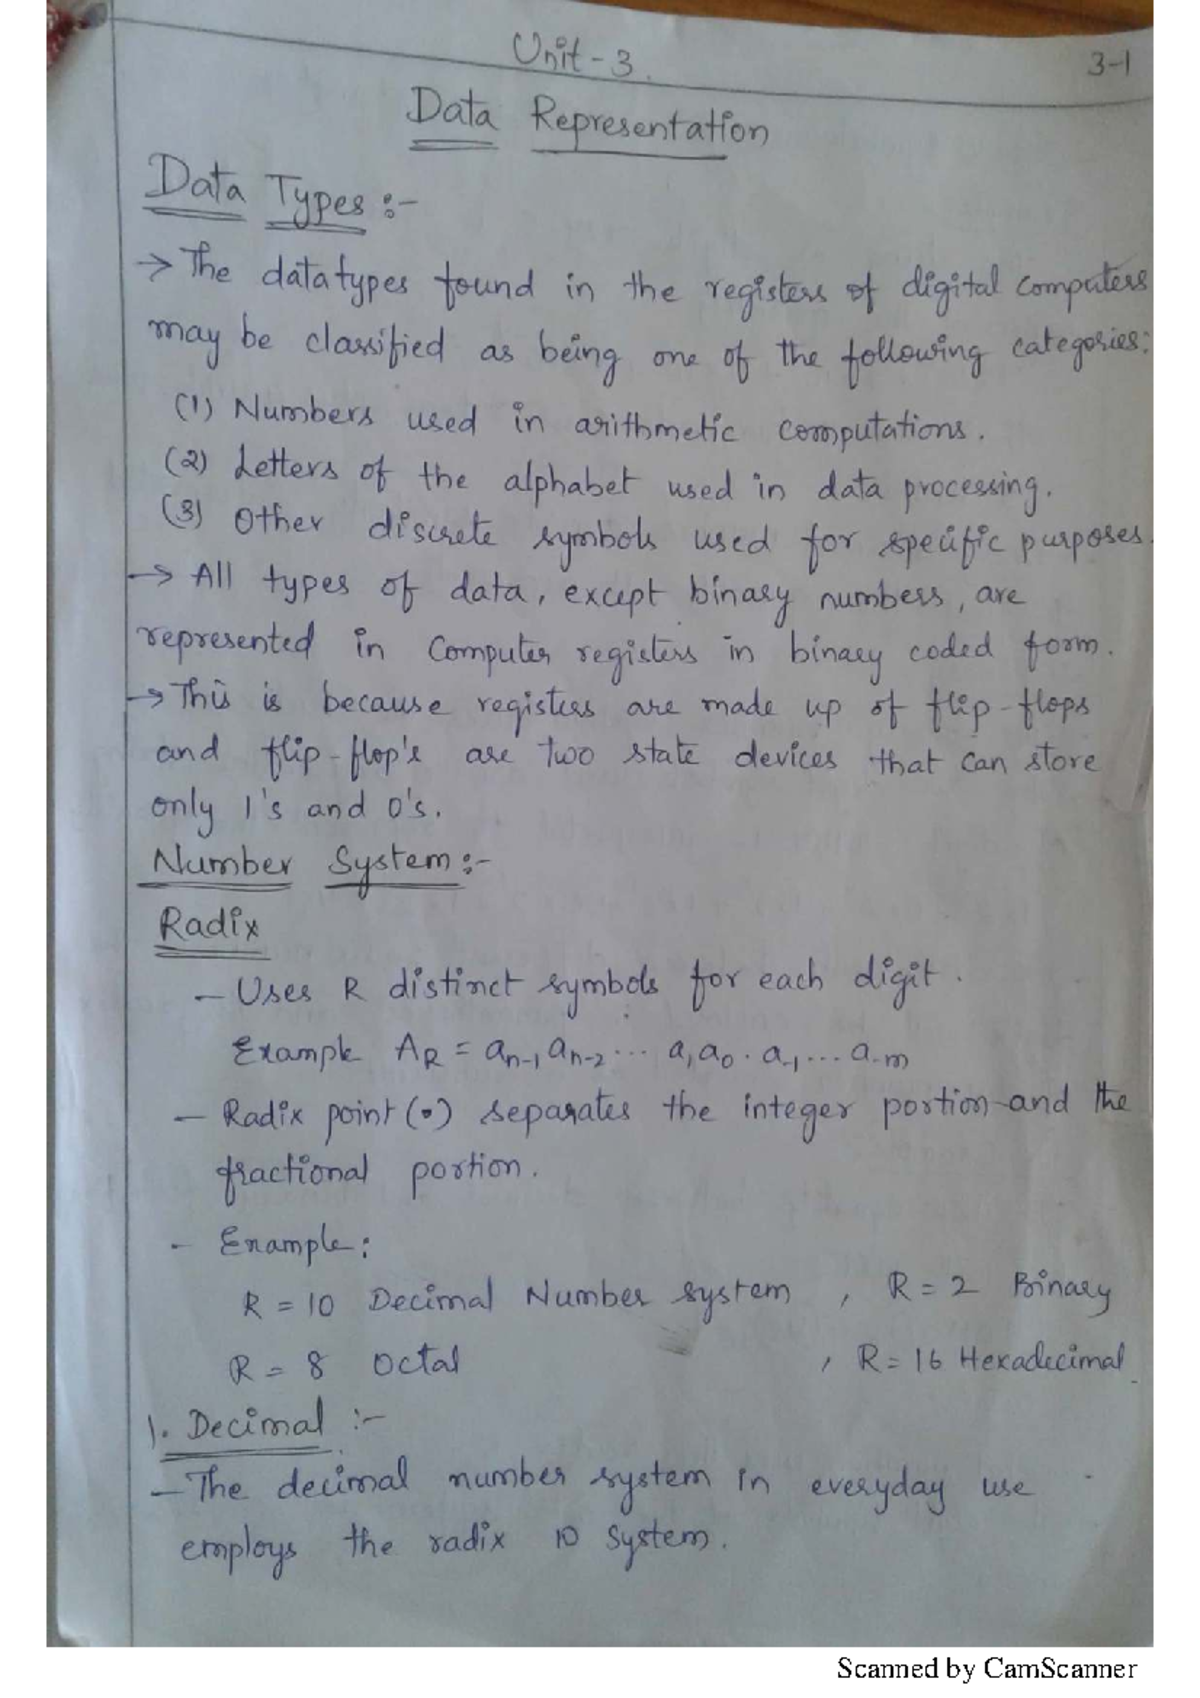 Unit - 3.
3-1
Data Representation
Data Types :-
→ The datatypes found in the registers of digital computers
may be classified as being one of the following categories:
(1) Numbers used in arithmetic computations.
(2) Letters of the alphabet used in data processing.
(3) Other discrete symbols used for specific purposes.
→ All types of data, except binary numbers, are
represented in Computer registers in binary coded form.
→ This is because registers are made up of flip-flops
and flip-flop's are two state devices that can store
only 1's and 0's.
Number System :-
Radix
- Uses R distinct symbols for each digit.
Example A_R = a_n-1 a_n-2 ... a_1 a_0 . a_-1 ... a_-m
- Radix point (.) separates the integer portion and the
fractional portion.
- Example:
R = 10 Decimal Number system , R = 2 Binary
R = 8 Octal , R = 16 Hexadecimal
1. Decimal :-
- The decimal number system in everyday use
employs the radix 10 system.
Scanned by CamScanner